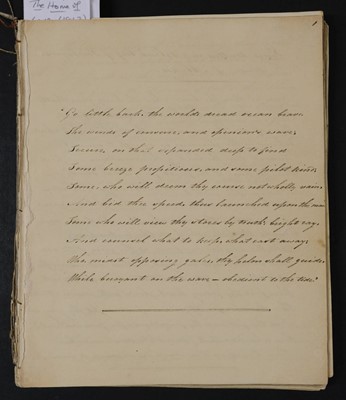 The Home of
1
"Go little bark, the world's dread ocean brave
The winds of censure, and opinion's wave;
Secure, on that expanded deep to find
Some breeze propitious, and some pilot kind;
Some, who will deem thy course not wholly vain
And bid thee speed, thus launched upon the main
Some who will view thy stores by truth's bright ray
And counsel what to keep, what cast away;
The most opposing gales thy helm shall guide
While buoyant on the wave – obedient to the tide."